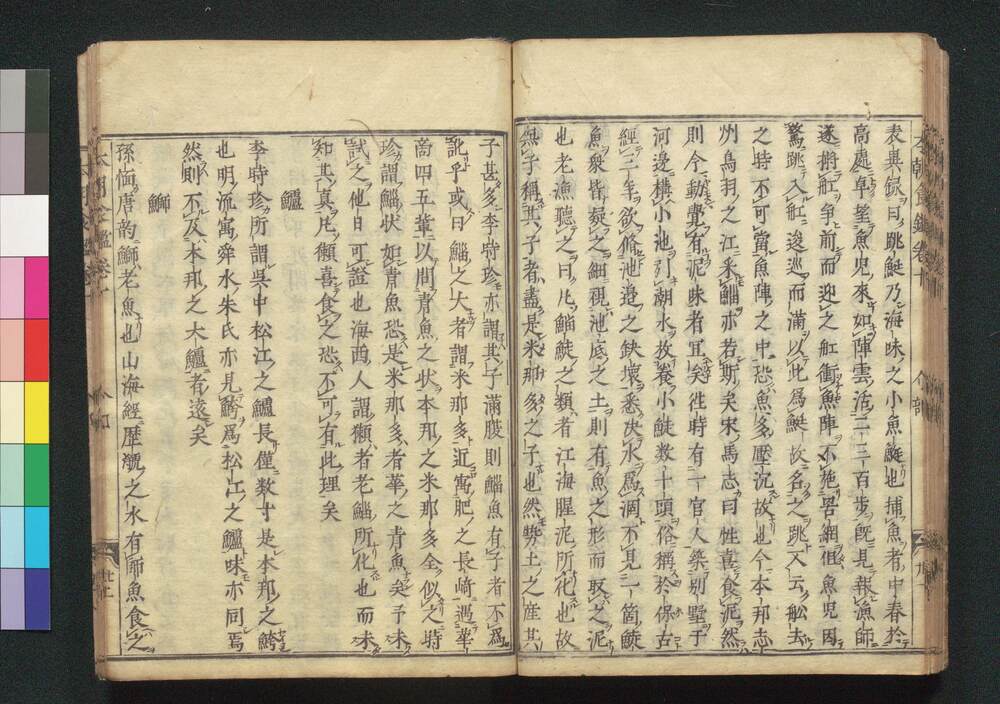 表異錄曰跳鯅乃海味之小魚鯅也捕魚者中春於
高處卓望魚兒來如陣雲活二三百步既見報漁師
遂掉舡爭前而迎之舡衝魚陣不施罟網但魚兒因
驚跳入舡逡巡而滿以此爲鯅故名之跳又云船去
之時不可當魚陣之中恐魚多壓沉故也今本邦志
州鳥羽之江采鯔亦若斯矣宋馬志曰性喜食泥然
則今動覺有泥味者宜矣徃時有一官人築別墅于
河邊構小池引朝水放養小鯐数十頭俗稱於保古
經三年欲脩池邊之缺壞悉决水爲涸不見一箇鯐
魚衆皆疑之細視池底之土則有魚之形而取之泥
也老漁聽之曰凡鯔鯐之類者江海腥泥所化也故
無子稱其子者盡是米那多之子也然勢土之產其
子甚多李時珍亦謂其子滿腹則鯔魚有子者不爲
訛乎或曰鯔之大者謂米那多近寓肥之長崎遇華
商四五輩以問青魚之状本邦之米那多全似之時
珍謂鯔状如青魚恐是米那多者華之青魚矣予未
試之他日可證也海西人謂獺者老鯔所化也而未
知其真凡獺喜食之恐不可有此理矣
鱸
李時珍所謂吳中松江之鱸長僅数寸是本邦之鮬
也明流寓舜水朱氏亦見鮬爲松江之鱸味亦同焉
然則不及本邦之大鱸者遠矣
鰤
孫愐唐韵鰤老魚也山海經歷㶁之水有師魚食之